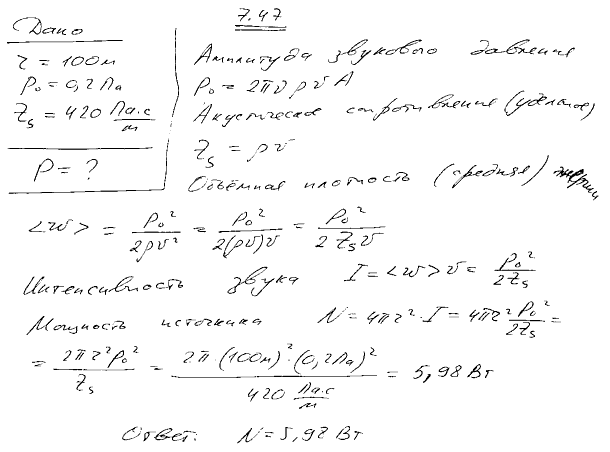 7.47
Дано
r = 100м
p₀ = 0,2 Па
Z_s = 420 Па·с/м
P = ?
Амплитуда звукового давления
p₀ = 2πν ρ v A
Акустическое сопротивление (удельное)
Z_s = ρ v
Объёмная плотность (средняя) энергии
<w> = p₀²/2ρv² = p₀²/2(ρv)v = p₀²/2 Z_s v
Интенсивность звука I = <w> v = p₀²/2Z_s
Мощность источника N = 4πr²·I = 4πr² p₀²/2Z_s =
= 2πr²p₀²/Z_s = 2·π·(100м)²·(0,2Па)²/420 Па·с/м = 5,98 Вт
Ответ: N = 5,98 Вт